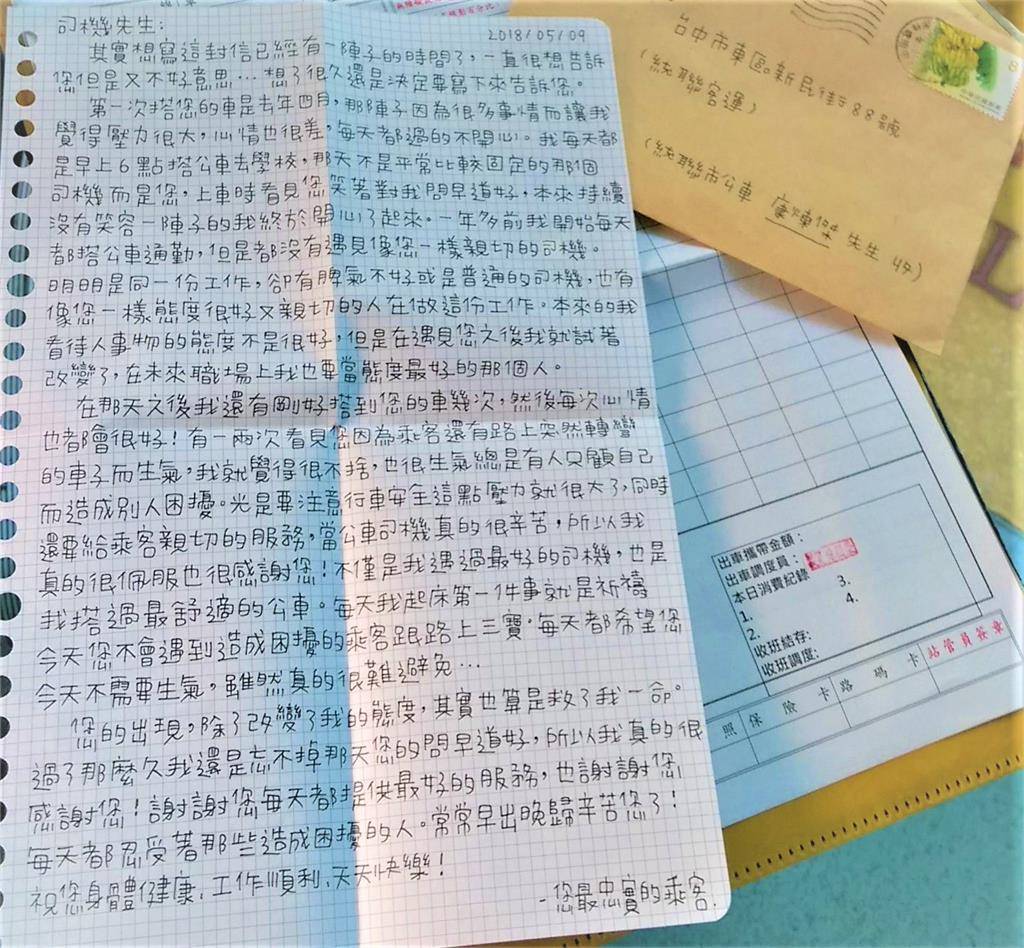 司機先生：
2018/05/09
其實想寫這封信已經有一陣子的時間了，一直很想告訴
您但是又不好意思…想了很久還是決定要寫下來告訴您。
第一次搭您的車是去年四月，那陣子因為很多事情而讓我
覺得壓力很大，心情也很差，每天都過的不開心。我每天都
是早上6點搭公車去學校，那天不是平常比較固定的那個
司機而是您，上車時看見您笑著對我問早道好，本來持續
沒有笑容一陣子的我終於開心了起來。一年多前我開始每天
都搭公車通勤，但是都沒有遇見像您一樣親切的司機。
明明是同一份工作，卻有脾氣不好或是普通的司機，也有
像您一樣態度很好又親切的人在做這份工作。本來的我
看待人事物的態度不是很好，但是在遇見您之後我就試著
改變了，在未來職場上我也要當態度最好的那個人。
在那天之後我還有剛好搭到您的車幾次，然後每次心情
也都會很好！有一兩次看見您因為乘客還有路上突然轉彎
的車子而生氣，我就覺得很不捨，也很生氣總是有人只顧自己
而造成別人困擾。光是要注意行車安全這點壓力就很大了，同時
還要給乘客親切的服務，當公車司機真的很辛苦，所以我
真的很佩服也很感謝您！不僅是我遇過最好的司機，也是
我搭過最舒適的公車。每天我起床第一件事就是祈禱
今天您不會遇到造成困擾的乘客跟路上三寶。每天都希望您
今天不需要生氣，雖然真的很難避免…
您的出現，除了改變了我的態度，其實也算是救了我一命。
過了那麼久我還是忘不掉那天您的問早道好，所以我真的很
感謝您！謝謝您每天都提供最好的服務，也謝謝您
每天都忍受著那些造成困擾的人。常常早出晚歸辛苦您了！
祝您身體健康，工作順利，天天快樂！
-您最忠實的乘客.
台中市東區新民街88號
（統聯客運）
（統聯市公車 康煉傑 先生 收）
8
出車攜帶金額：
出車調度員：
本日消費紀錄
1.
2.
3.
4.
收班結存：
收班調度：
照 保 險 卡 路 碼 卡 站管員簽章